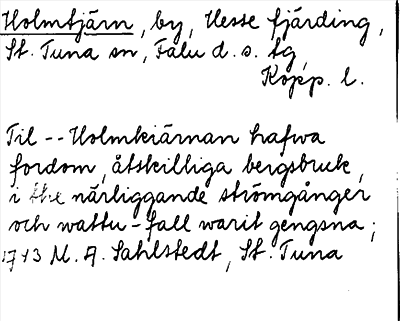 Holmtjärn, by, Hesse fjärding,
St. Tuna sn, Falu d. s. tg,
Kopp. l.
Til -- Holmkiärnan hafwa
fordom åtskilliga bergsbruk,
i the närliggande strömgånger
och wattu-fall warit gengsna;
1743 M. A. Sahlstedt, St. Tuna